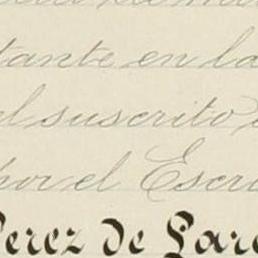 tante en la
el suscrito
por el Escri
Perez de Pare